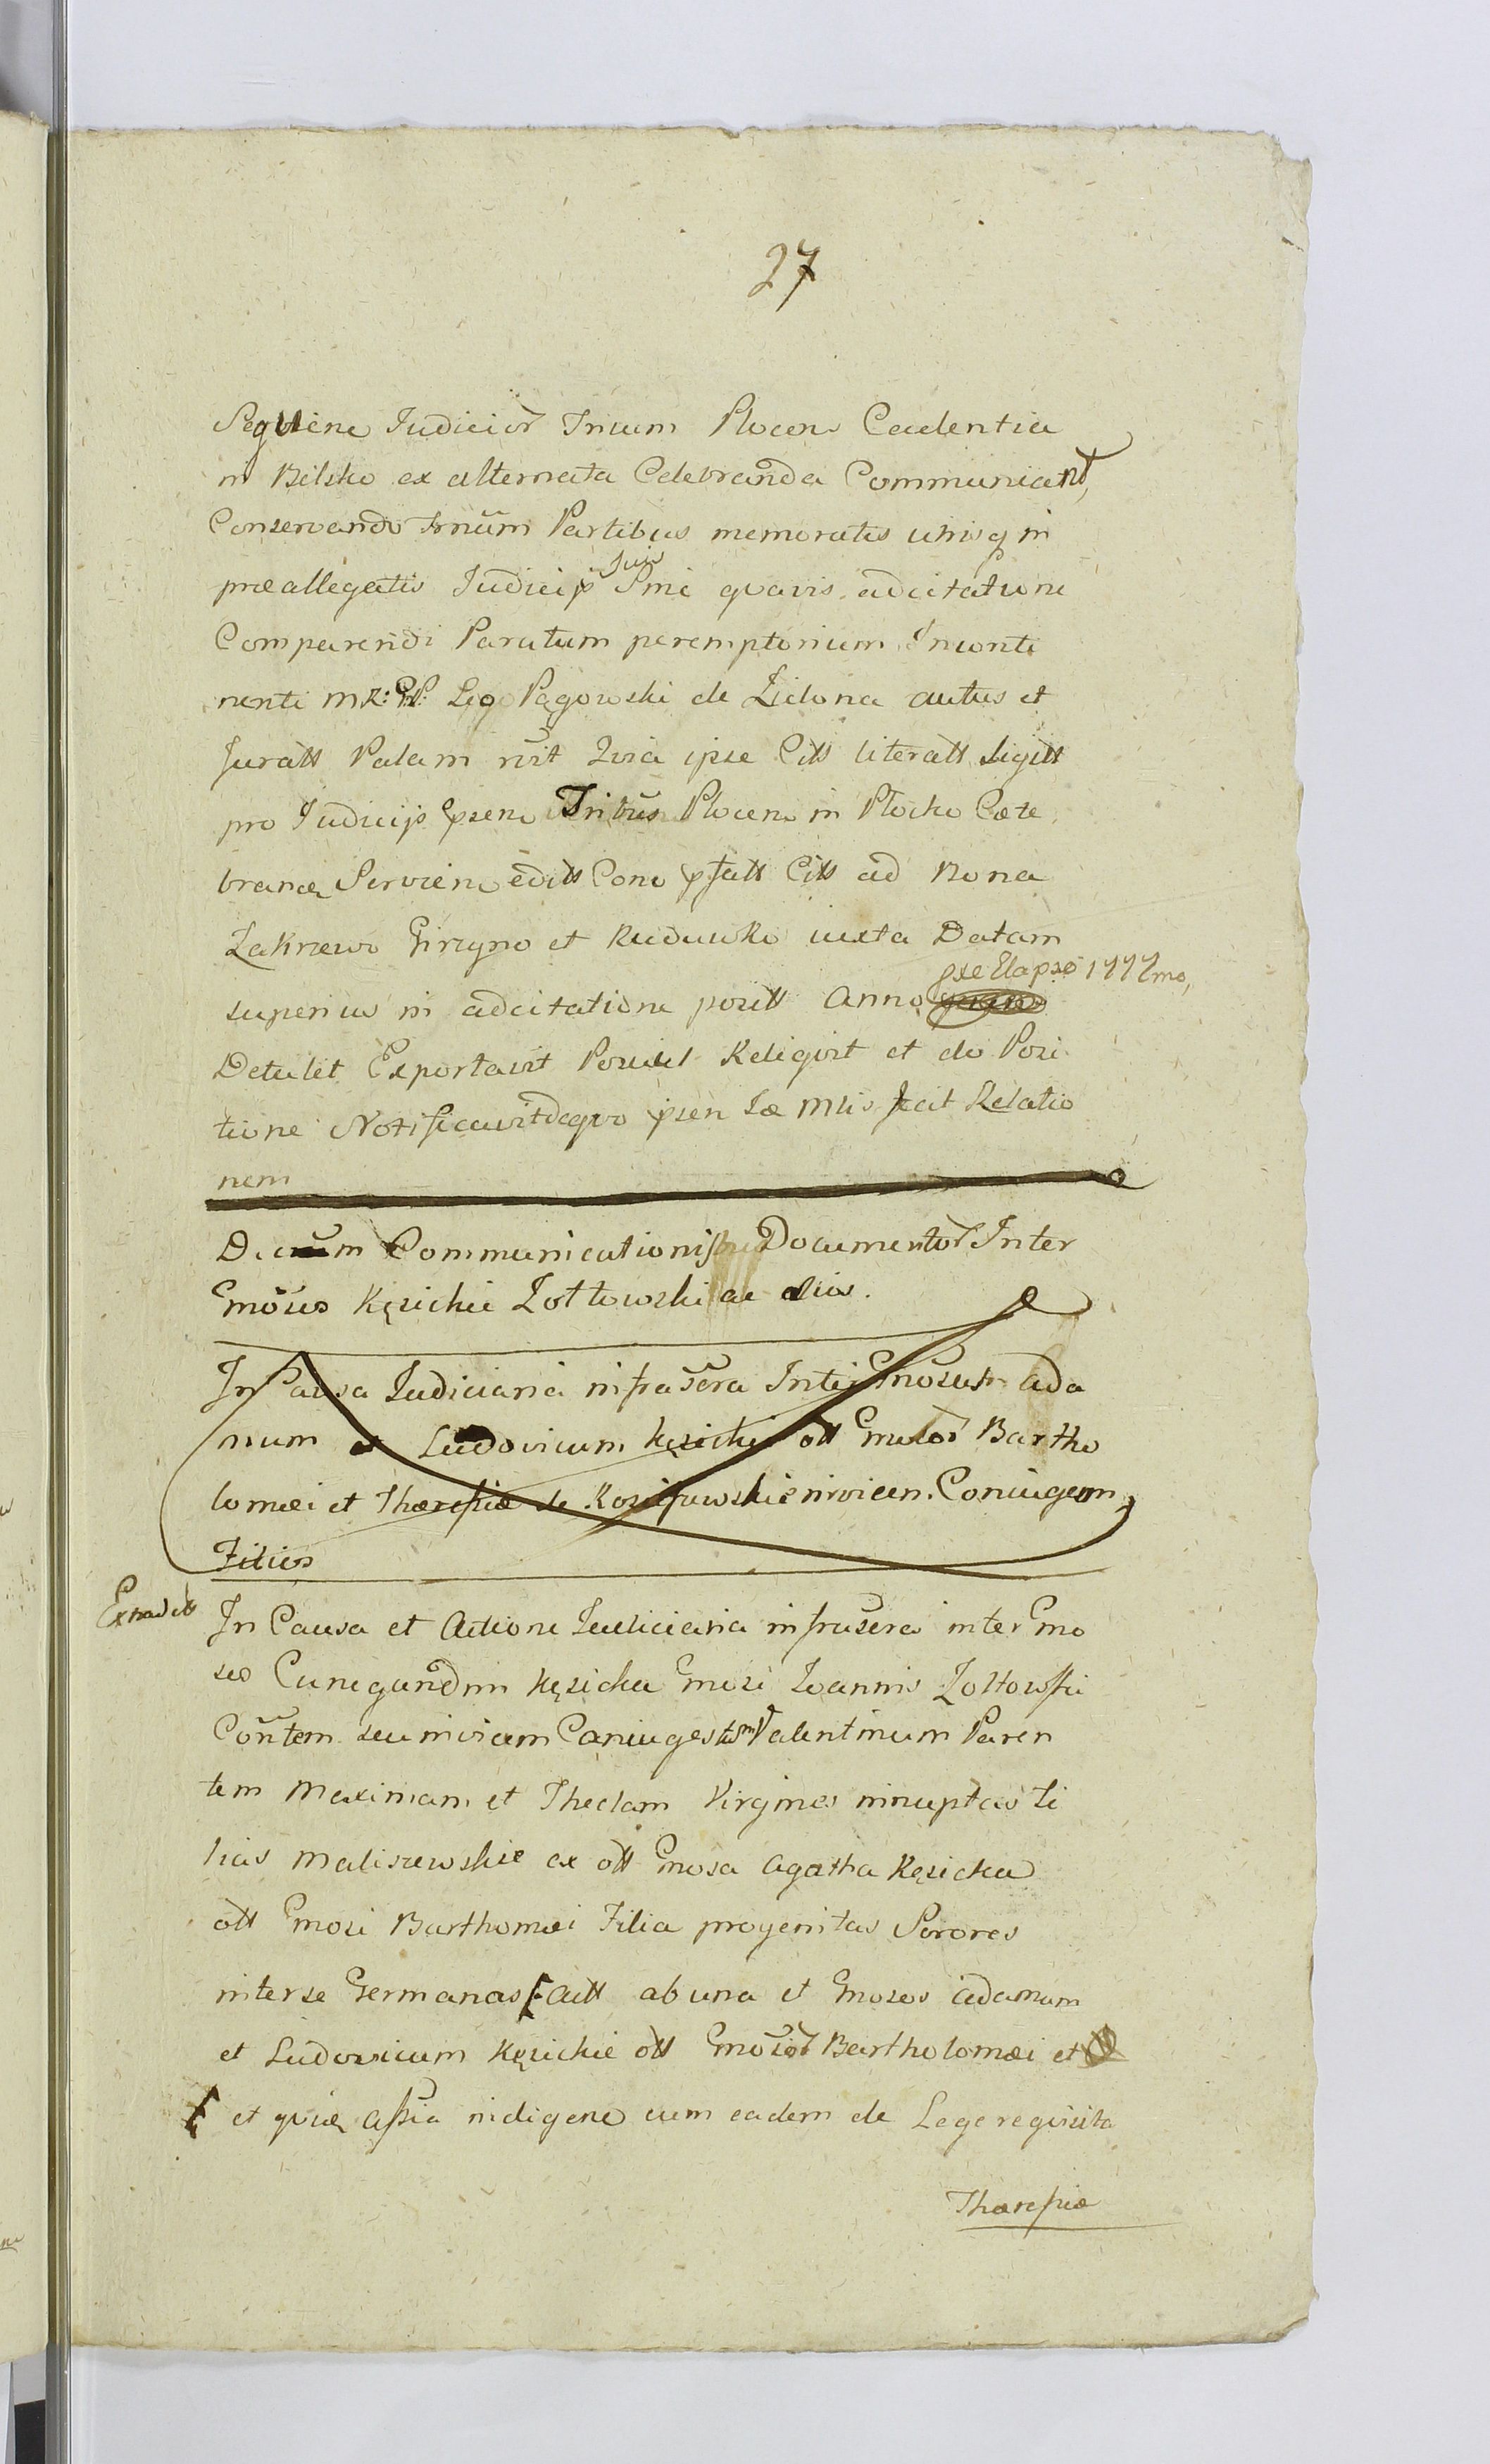 27
Sequene Judicior Trium Plocen Cadentia
in Bilsko ex alternata Celebranda Communicant,
Conservando Trnum Partibus memoratis utrisq in
præallegatis Judicijs Suis Sine quavis adcitatione
Comparendi Paratum peremptorium Inconti
nenti MR: GP: Leo Pągowski de Zielona autus et
Juratt Palam rvit Quia ipse Citt literatt Ligitt
pro Judicijs psen Tribus Plocen in Płocko Cæle
branq Serviene editt Cono pfatt Citt ad Bona
Zakrzewo Girzyno et Kuduwko iuxta Datam
superius in adcitatione positt Anno pxe Elapso 1777mo,
Detulit Exportavit Posuit Reliqvit et de Posi
tione Notificavit deqvo psen Læ Mtis fecit Relatio
nem
Decum Communicationis Documentor Inter
Gnosos Kęsickie Zołtowski ac alios.
In Causa Judiciaria infrascra Inter Gnosum Ada
mum et Ludovicum Kęsickie ott Gnosor Bartho
lomæi et Tharesiæ de Kosijowskie invicen Coniugum,
Filios
Extradit
In Causa et Actione Judiciaria infrascra inter Gno
sos Cunegundim Kęsicka Gnosi Joannis Zołtowski
Contem seu invicem Coniuges tum Valentinum Paren
tem Mariniam et Theclam Virgines innuptas Fi
lias Maliszewskie ex ott Gnosa Agatha Kęsicka
ott Gnosi Barthomæi Filia progenitas Sorores
inter se Germanas [: Actt ab una et Gnosos Adamum
et Ludovicum Kęsickie ott Gnosor Bartholomæi et
[ et qviæ assia indigene cum eadem de Lege reqvisita
Tharesiæ